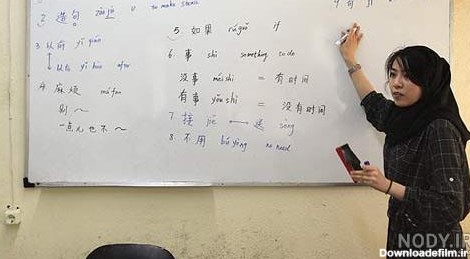 2 造句 zào jù to make sentence
3 以前 yǐ qián
以后 yǐ hòu after
4 麻烦 má fan
别～
一点儿也不～
5 如果 rú guǒ if
6 事 shì something to do
没事 méi shì = 有时间
有事 yǒu shì = 没有时间
7 接 jiē ↔ 送 sòng
8 不用 bú yòng no need
9 句
NODY.IR
Downloadefilm.ir